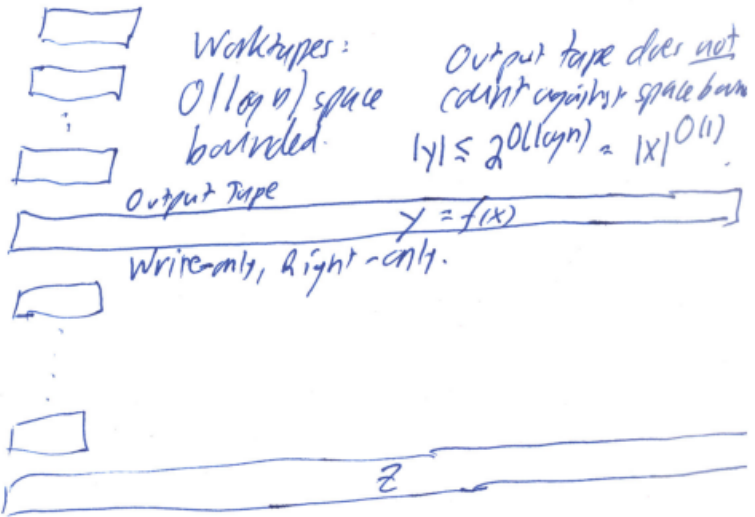 Worktapes:
O(log n) space
bounded.
Output tape does not
count against space boun
|y| ≤ 2^O(log n) = |x|^O(1).
Output Tape
y = f(x)
Write-only, Right-only.
Z